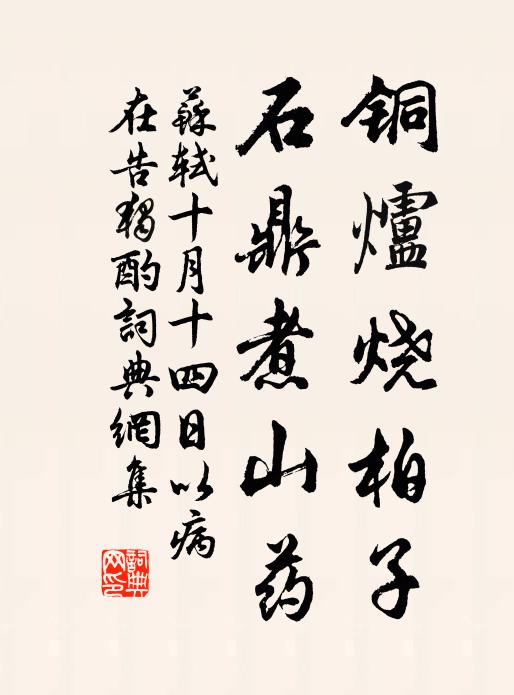 铜爐烧柏子
石鼎煮山药
蘇轼十月十四日以病
在告獨酌詞典網集
詞典
网印